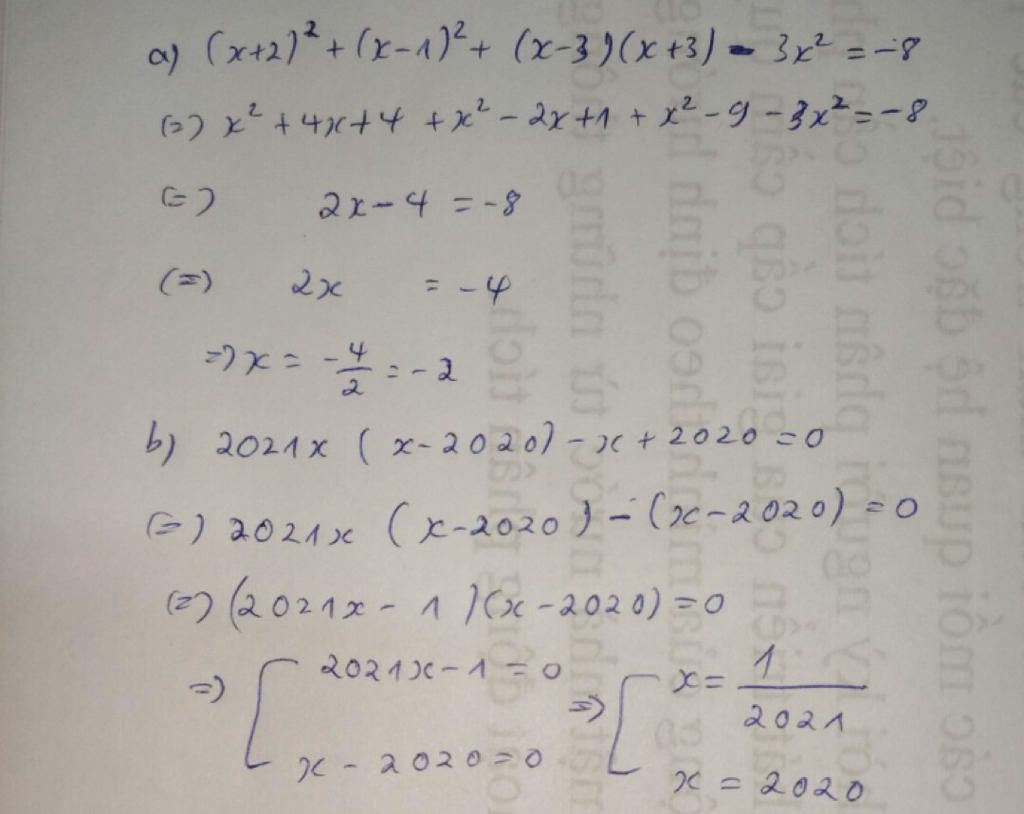 a) (x+2)² + (x-1)² + (x-3)(x+3) - 3x² = -8
(=) x² + 4x + 4 + x² - 2x + 1 + x² - 9 - 3x² = -8
(=) 2x - 4 = -8
(=) 2x = -4
=) x = -4/2 = -2
b) 2021x (x-2020) - x + 2020 = 0
(=) 2021x (x-2020) - (x-2020) = 0
(=) (2021x - 1)(x-2020) = 0
=) [ 2021x - 1 = 0 =) [ x = 1/2021
x - 2020 = 0 x = 2020